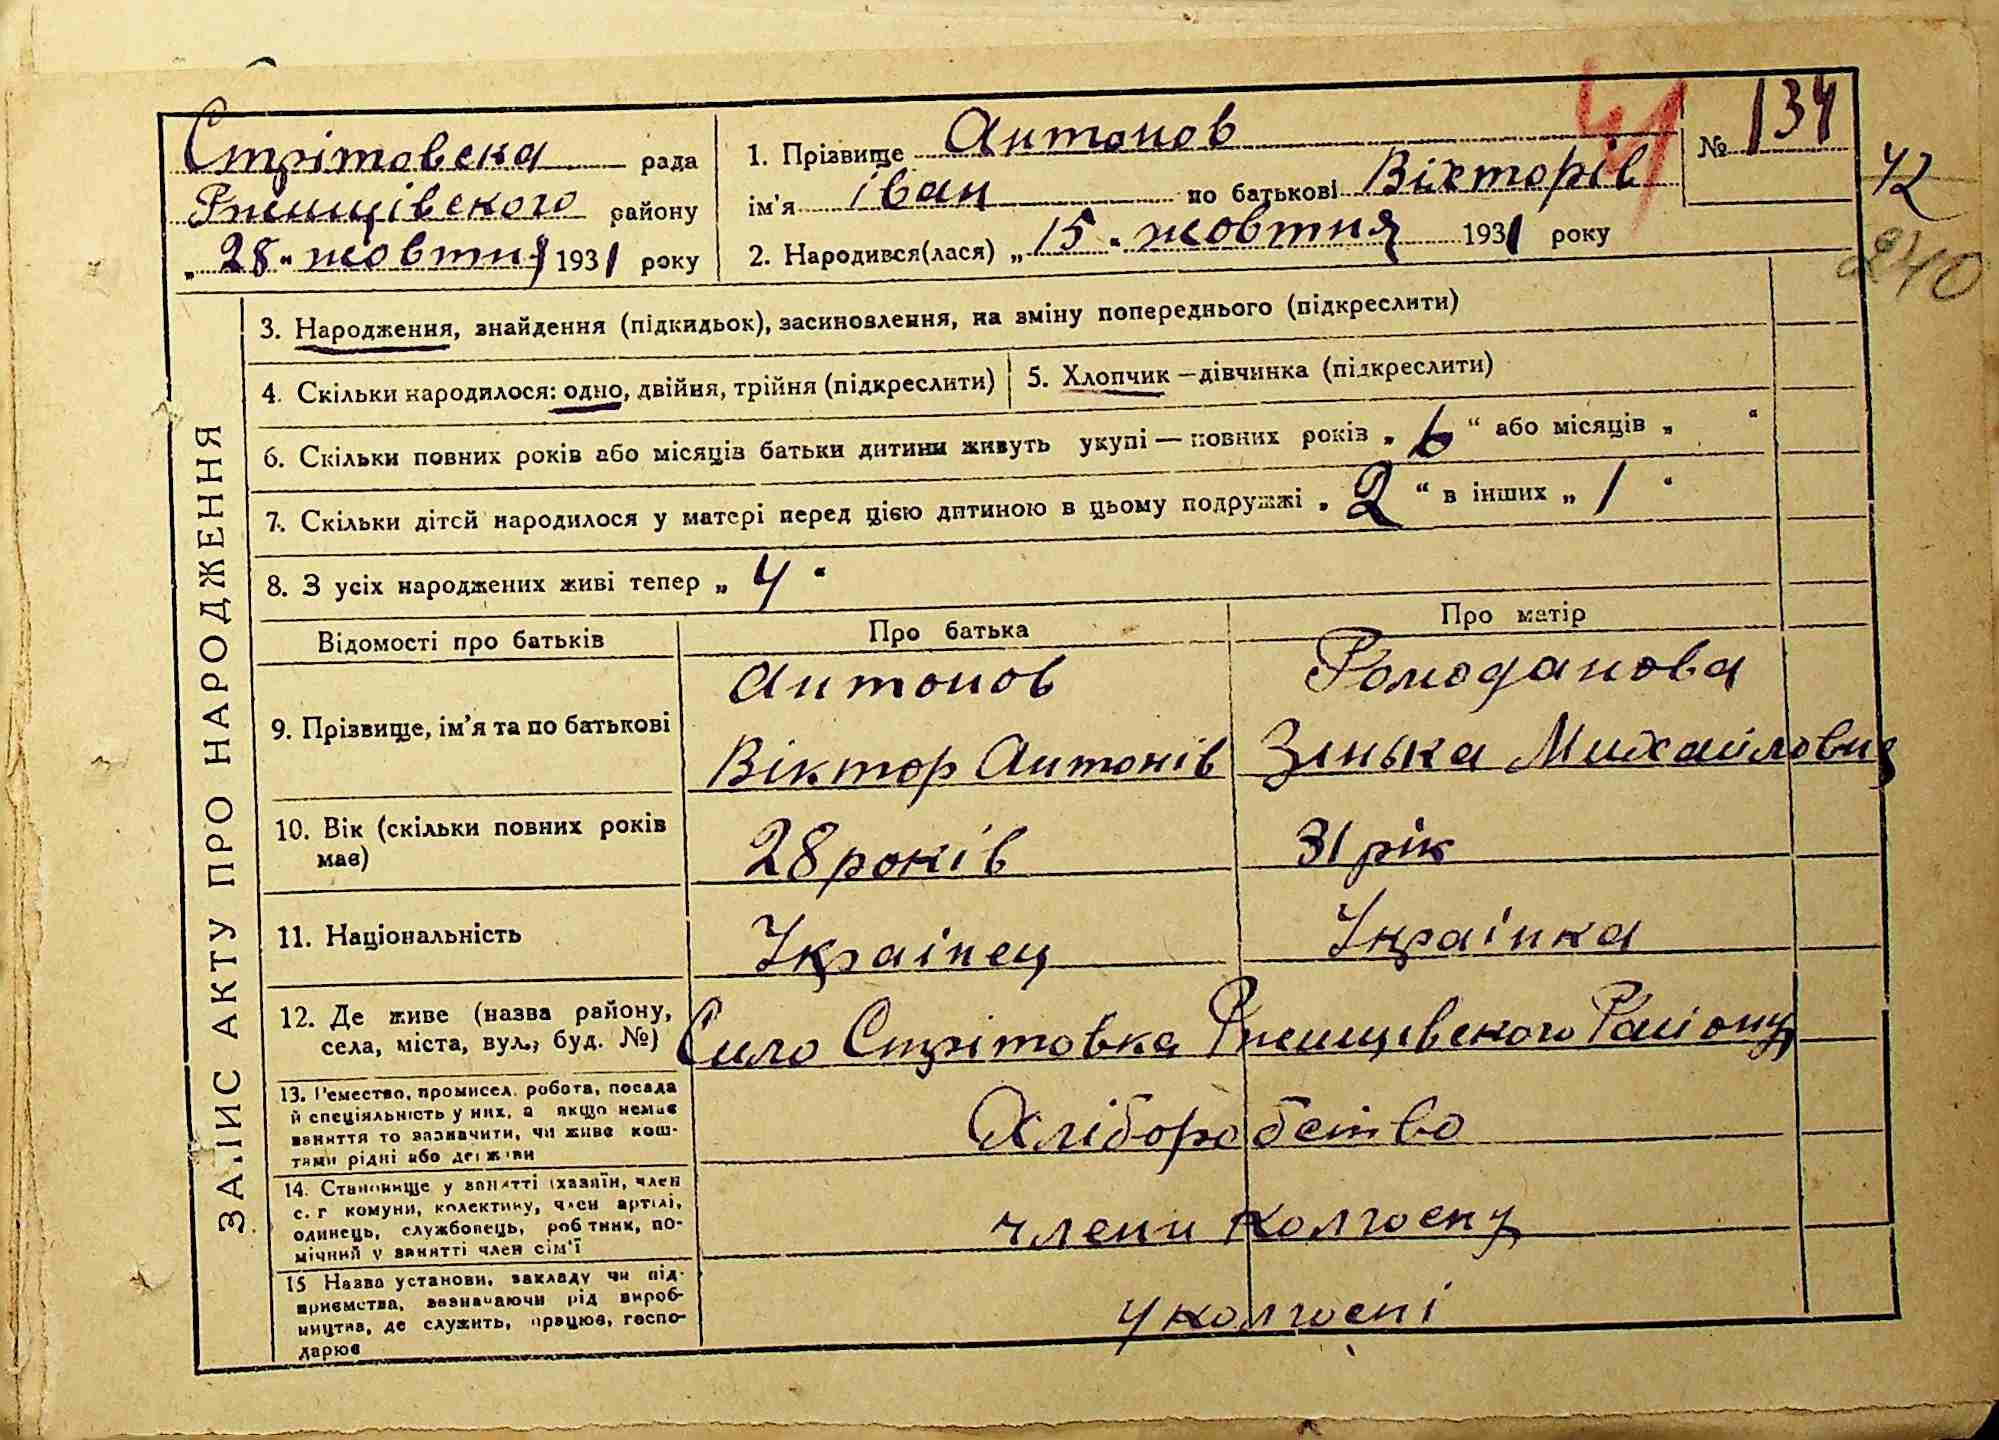 Стрітовска рада
Ржищівського району
„ 28 “ жовтня 1931 року
1. Прізвище Антонов
ім'я Іван по батькові Вікторів
2. Народився(лася) „ 15 “ жовтня 1931 року
41
№ 134
42
240
ЗАПИС АКТУ ПРО НАРОДЖЕННЯ
3. Народження, знайдення (підкидьок), засиновлення, на зміну попереднього (підкреслити)
4. Скільки народилося: одно, двійня, трійня (підкреслити)
5. Хлопчик – дівчинка (підкреслити)
6. Скільки повних років або місяців батьки дитини живуть укупі — повних років „ 6 “ або місяців „ “
7. Скільки дітей народилося у матері перед цією дитиною в цьому подружжі „ 2 “ в інших „ 1 “
8. З усіх народжених живі тепер „ 4 “
Відомості про батьків Про батька Про матір
9. Прізвище, ім'я та по батькові
Антонов
Віктор Антонів
Ромоданова
Зінька Михайловна
10. Вік (скільки повних років
має)
28 років
31 рік
11. Національність
Українец
Українка
12. Де живе (назва району,
села, міста, вул., буд. №)
Село Стрітовка Ржищівского Району
13. Ремество, промисел, робота, посада
й спеціяльність у них, а якщо немає
заняття то зазначити, чи живе кош-
тами рідні або держави
Хліборобство
14. Становище у занятті (хазяїн, член
с.-г. комуни, колективу, член артілі,
одинець, службовець, робітник, по-
мічний у занятті член сім'ї
члени колгоспу
15 Назва установи, закладу чи під-
приємства, зазначаючи рід вироб-
ництва, де служить, працює, госпо-
дарює
у колгоспі